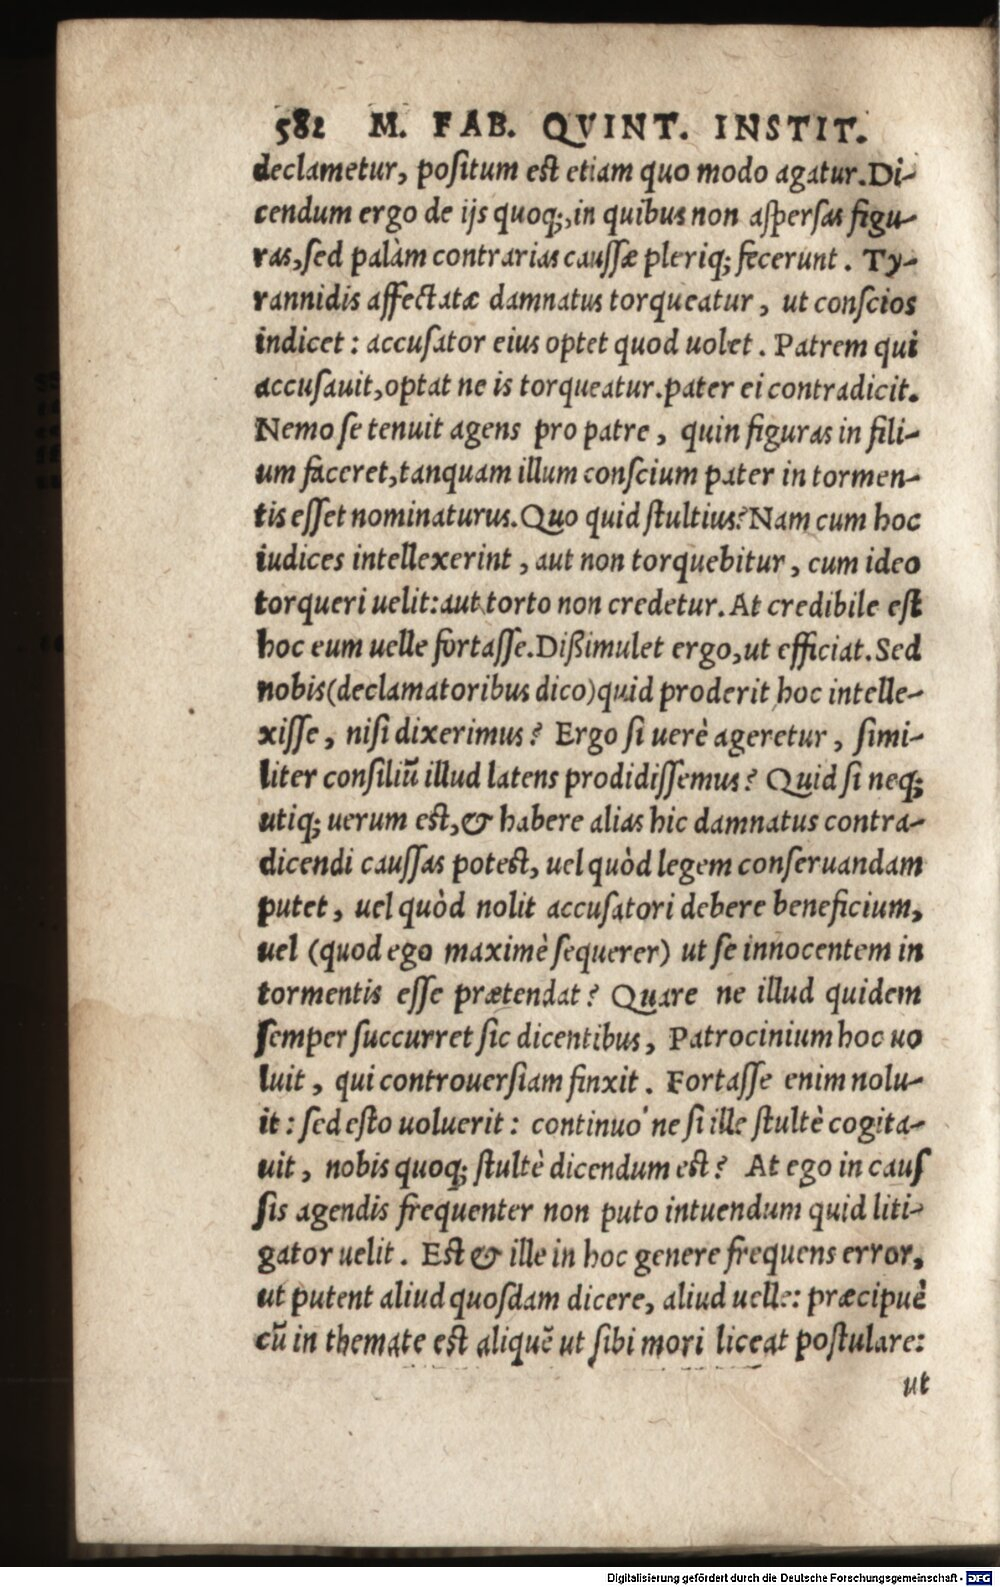 582 M. FAB. QVINT. INSTIT.
declametur, poſitum eſt etiam quo modo agatur. Di-
cendum ergo de ijs quoq;, in quibus non aſperſas figu-
ras, ſed palàm contrarias cauſſæ pleriq; fecerunt. Ty-
rannidis affectatæ damnatus torqueatur, ut conſcios
indicet: accuſator eius optet quod uolet. Patrem qui
accuſauit, optat ne is torqueatur. pater ei contradicit.
Nemo ſe tenuit agens pro patre, quin figuras in fili-
um faceret, tanquam illum conſcium pater in tormen-
tis eſſet nominaturus. Quo quid ſtultius? Nam cum hoc
iudices intellexerint, aut non torquebitur, cum ideo
torqueri uelit: aut torto non credetur. At credibile eſt
hoc eum uelle fortaſſe. Dißimulet ergo, ut efficiat. Sed
nobis (declamatoribus dico) quid proderit hoc intelle-
xiſſe, niſi dixerimus? Ergo ſi uerè ageretur, ſimi-
liter conſiliũ illud latens prodidiſſemus? Quid ſi neq;
utiq; uerum eſt, & habere alias hic damnatus contra-
dicendi cauſſas poteſt, uel quòd legem conſeruandam
putet, uel quòd nolit accuſatori debere beneficium,
uel (quod ego maximè ſequerer) ut ſe innocentem in
tormentis eſſe prætendat? Quare ne illud quidem
ſemper ſuccurret ſic dicentibus, Patrocinium hoc uo
luit, qui controuerſiam finxit. Fortaſſe enim nolu-
it: ſed eſto uoluerit: continuo' ne ſi ille ſtultè cogita-
uit, nobis quoq; ſtultè dicendum eſt? At ego in cauſ
ſis agendis frequenter non puto intuendum quid liti-
gator uelit. Eſt & ille in hoc genere frequens error,
ut putent aliud quoſdam dicere, aliud uelle: præcipuè
cũ in themate eſt aliquẽ ut ſibi mori liceat poſtulare:
ut
Digitalisierung gefördert durch die Deutsche Forschungsgemeinschaft - DFG